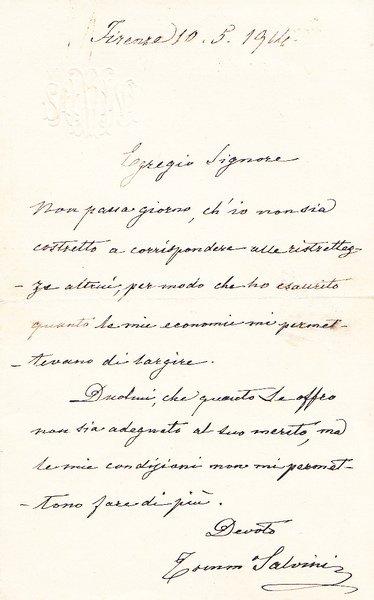 Firenze 10. 5. 1914.
Egregio Signore
Non passa giorno, ch'io non sia
costretto a corrispondere alle ristrettez-
-ze altrui, per modo che ho esaurito
quanto le mie economie mi permet-
-tevano di largire.
Duolmi, che quanto Le offro
non sia adeguato al suo merito, ma
le mie condizioni non mi permet-
-tono fare di più.
Devoto
Tommso Salvini